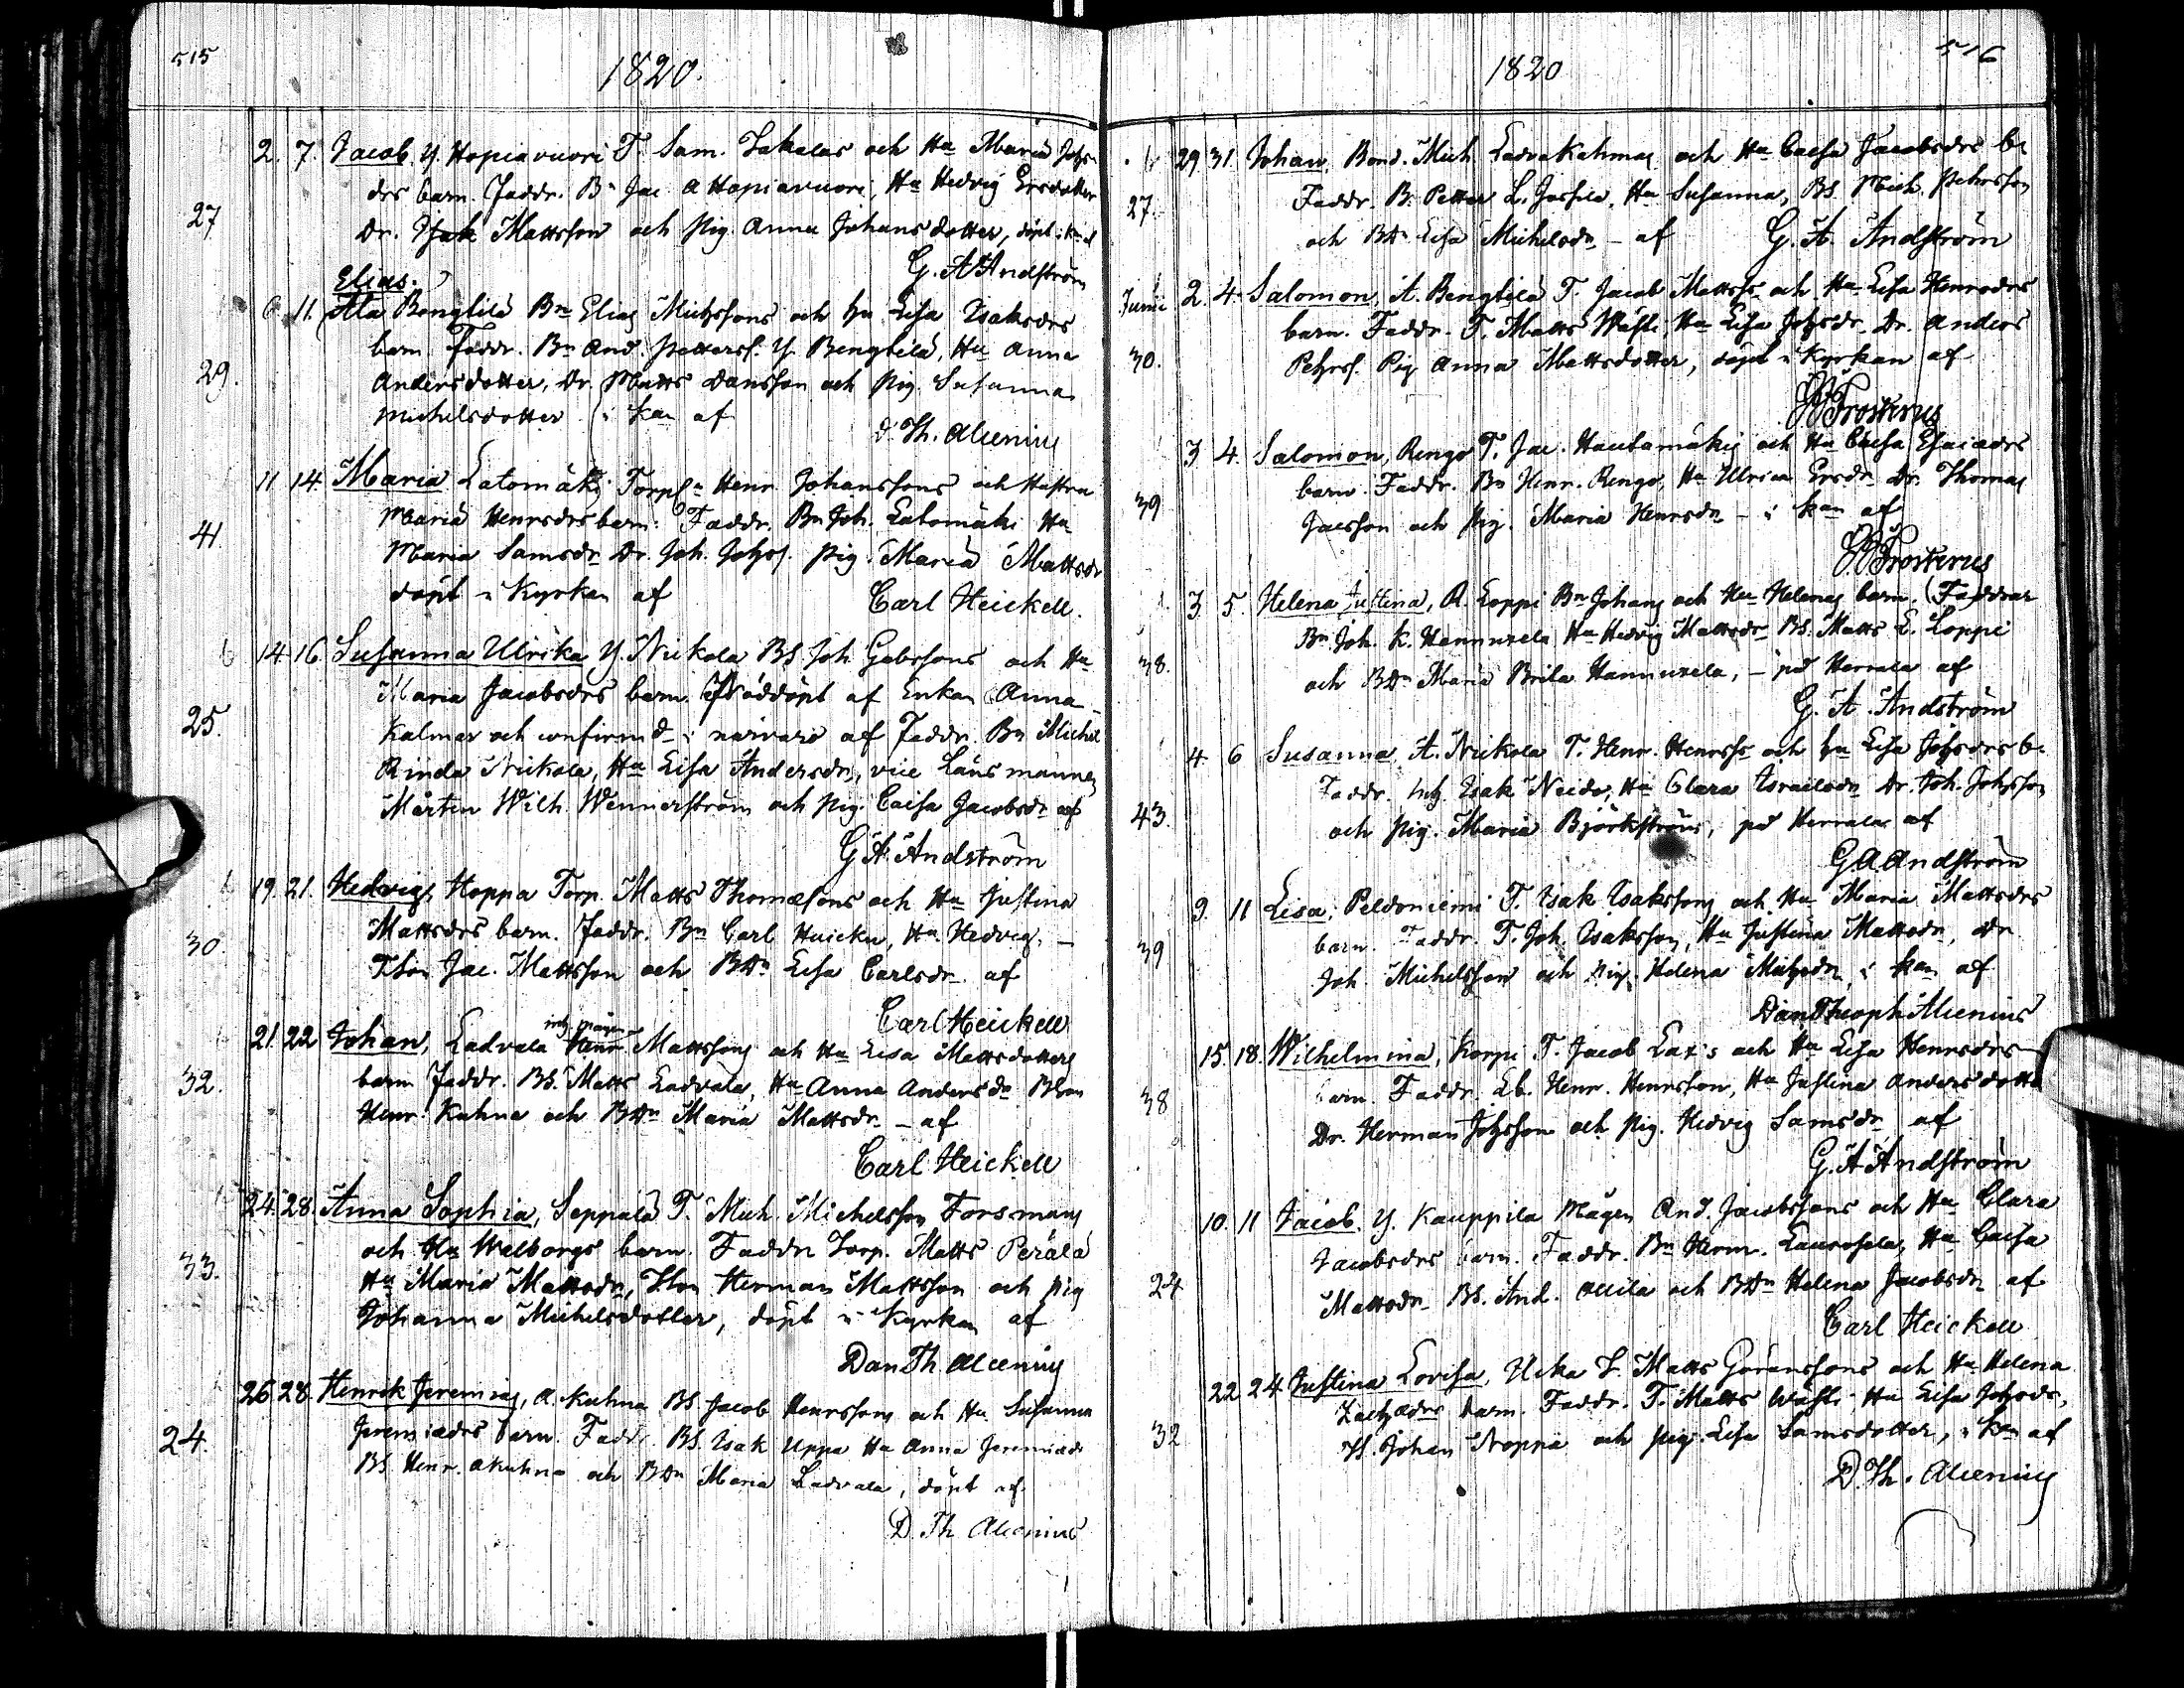 515
1820.
2. 7. Jacob Y. Hopiavuori T. Sam. Jakalas och Hu Maria Johs
drs barn. Faddr. Bn Jac. A Hopiavuori, Hu Hedvig Ersdotter
27
Dr. Isak Mattsson och pig. Anna Johansdotter, döpt i Kn af
G. A Andström
Elias.
6 11. Ala Bengtilä Bn Elias Michssons och hu Lisa Isaksdrs
barn Faddr. Bn And. Petterss. Y. Bengtilä, Hu Anna
29.
Andersdotter, Dr. Matts Dansson och pig. Susanna
Michelsdotter i kan af
D. Th. Alcenius
11 14. Maria Latomäki Torp. Henr. Johanssons och Hustru
Maria Henrsdrs barn. Faddr. Bn Joh. Latomäki Hu
41.
Maria Samsdr Dr. Joh. Johss. pig. Maria Mattsdr
döpt i Kyrkan af
Carl Heickell.
14 16 Susanna Ulrika Y. Nickola BS Joh Gabrssons och Hu
Maria Jacobsdrs barn. Nöddöpt af Enkan Anna
25.
Kalmar och confirmd i närvaro af Faddr. Bn Michel
Rinda Nickola, Hu Lisa Andersdr, vice Länsmannen
Mårten Wilh. Wennerström och pig. Caisa Jacobsdr af
G A Andström
19. 21. Hedvig, Hoppa Torp. Matts Thomæsons och Hu Justina
Mattsdrs barn. Faddr. Bn Carl Huicku, Hu Hedvig,
30.
T.Son Jac. Mattsson och BDr Lisa Carlsdr af
Carl Heickell
inh. mågen
21. 22 Johan, Ladvala Henr Mattssons och Hu Lisa Mattsdotters
barn Faddr. BS. Matts Ladvala, Hu Anna Andersdr BSon
32.
Henr. Kuhna och BDr Maria Mattsdr - af
Carl Heickell
24. 28. Anna Sophia, Seppälä T. Mich. Michelsson Forsmans
och Hu Walborgs barn. Faddr Torp. Matts Perälä
33.
Hu Maria Mattsdr, TSon Herman Mattsson och pig
Johanna Michelsdotter, döpt i Kyrkan af
Dan Th. Alcenius
26 28. Henrik Jeremias, A. Kuhna BS. Jacob Henrssons och Hu Susanna
Jeremiædrs barn. Faddr. BS. Isak Uppa Hu Anna Jeremiædr
24.
BS. Henr. A Kuhna och BDr Maria Ladvala, döpt af
D. Th Alcenius
516
1820
29 31. Johan, Bond. Mich Ladvakahmas och Hu Caisa Jacobsdrs b.
27.
Faddr. B. Petter L. Jassila, Hu Susanna, BS. Mich. Pehrsson
och BDr Lisa Michelsdr - af G. A. Andström
Junii 2. 4. Salomon, A. Bengtilä T. Jacob Mattss. och Hu Lisa Henrsdrs
barn. Faddr. T. Matts Wästi Hu Lisa Johsdr. Dr. Anders
30.
Pehrss. Pig Anna Mattsdotter, döpt i Kyrkan af
Frosterus
3 4. Salomon, Rengo T. Jac. Hautamäkis och Hu Caisa Esaiædrs
barn. Faddr. Bn Henr. Rengo, Hu Ulrica Ersdr. Dr. Thomas
39
Jacsson och pig. Maria Henrsdr - i kan af
Frosterus
3 5. Helena Justina, A. Loppi Bn Johans och Hu Helenas barn. Faddrar
Bn Joh. K. Hannuxela Hu Hedvig Mattsdr BS. Matts L. Loppi
38.
och BDr Maria Brita Hannuxela, - på Herrala af
G. A. Andström
4. 6 Susanna A. Nickola T. Henr. Henrss. och hu Lisa Johsdrs b.
Faddr. Inh. Isak Neido, Hu Clara Israelsdr Dr. Joh. Johsson
43.
och pig. Maria Björkström, på Herrala af
G A Andström
9. 11 Lisa, Peldoniemi T. Isak Isakssons och Hu Maria Mattsdrs
39
barn. Faddr. T. Joh. Isaksson, Hu Justina Mattsdr, Dr.
Joh. Michelsson och pig. Helena Michsdr i kan af
Dan Theoph Alcenius
15. 18. Wilhelmina, Korpi T. Jacob Lax's och Hu Lisa Henrsdrs
38
barn. Faddr. Lb. Henr. Henrsson, Hu Justina Andersdotter
Dr. Herman Johsson och pig. Hedvig Samsdr af
G. A Andström
10. 11 Jacob. Y. Kauppila Mågen And. Jacobssons och Hu Clara
Jacobsdrs barn. Faddr. Bn Herm. Laurosela, Hu Caisa
24
Mattsdr BS. And. Ollila och BDr Helena Jacobsdr af
Carl Heickell
22 24. Justina Lovisa, Ucka T. Matts Göranssons och Hu Helena
Zachædrs barn. Faddr. T. Matts Wästi Hu Lisa Johsdr,
32
Johan Noppa och pig. Lisa Samsdotter, i kn af
D. Th. Alcenius